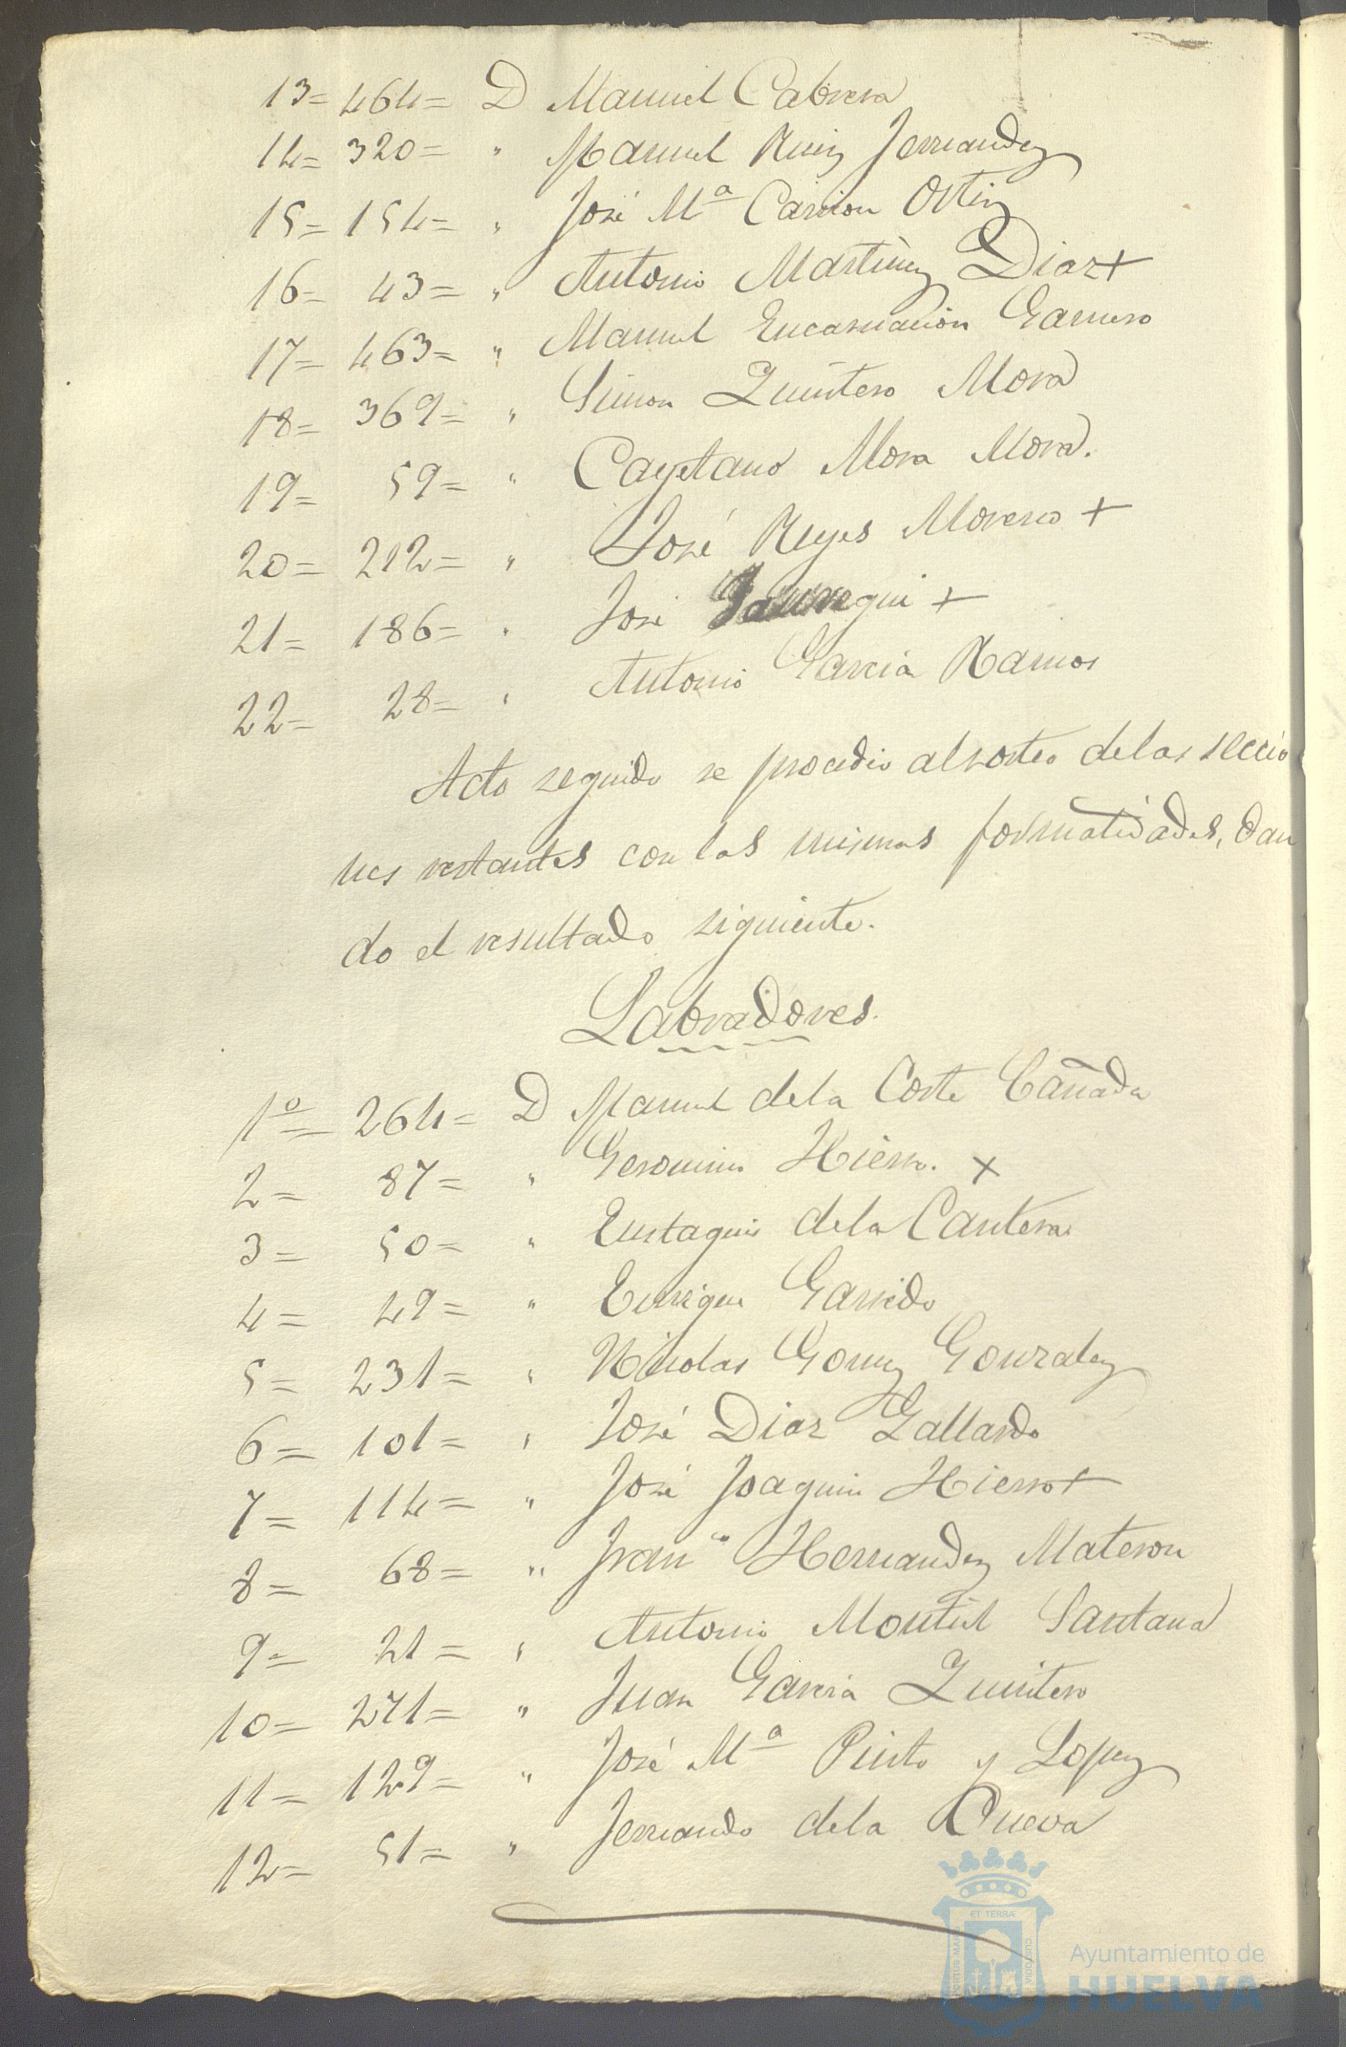 13= 464= D Manuel Cabrera
14= 320= " Manuel Ruiz Fernandez
15= 154= " José Mª Carrion Ortiz
16= 43= " Antonio Martinez Diaz +
17= 463= " Manuel Encarnacion Garrero
18= 369= " Simon Quintero Mora
19= 59= " Cayetano Mora Mora.
20= 212= " José Reyes Moreno +
21= 186= " José Jauregui +
22= 28= " Antonio Garcia Ramos
Acto seguido se procedio al sorteo delas seccio
nes restantes con las mismas formalidades, dan
do el resultado siguiente.
Labradores.
1º= 264= D Manuel dela Corte Cañada
2= 87= " Geronimo Hierro. x
3= 50= " Eustaquio dela Cantera
4= 49= " Enrique Garrido
5= 231= " Nicolas Gomez Gonzalez
6= 101= " José Diaz Gallardo
7= 114= " José Joaquin Hierro +
8= 68= " Franco Hernandez Materon
9= 21= " Antonio Montiel Santana
10= 271= " Juan Garcia Quintero
11= 129= " José Mª Pinto y Lopez
12= 51= " Fernando dela Cueva
Ayuntamiento de
HUELVA